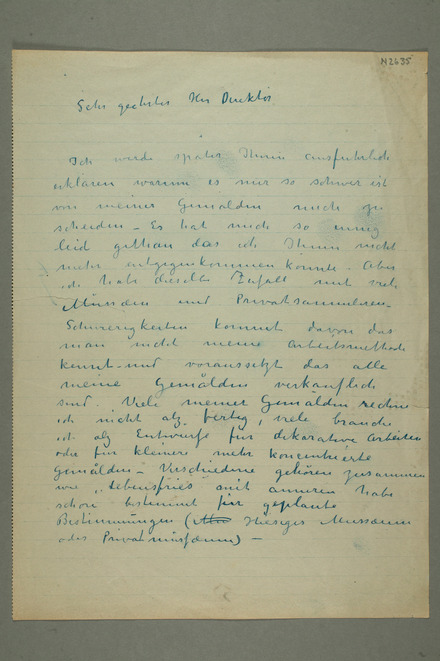 N2635
Sehr geehrter Herr Direktor
Ich werde später Ihnen ausfuhrlich
erklären warum es mir so schwer ist
von meinen Gemälden mich zu
scheiden – Es hat mich so
leid gethan das ich Ihnen nicht
mehr entgegenkommen konnte. Aber
ich habe dieselbe mit viele
Mussæen und Privatsammlern –
Schwierigkeiten kommt davon das
man nicht meine Arbeitsmethode
kennt – und voraussetzt das alle
meine Gemälden verkauflich
sind. Viele meiner Gemälden rechne
ich nicht alz fertig, viele brauche
ich alz Entwurfe fur dekorative Arbeiten
oder fur kleinere mehr koncentrierte
Gemälden – Verschiedene gehören zusammen
wie „Lebensfries" mit anneren habe
schon bestemmt für geplante
Bestimmungen ( Hiesiges Mussæum
oder Privatmusæum) –